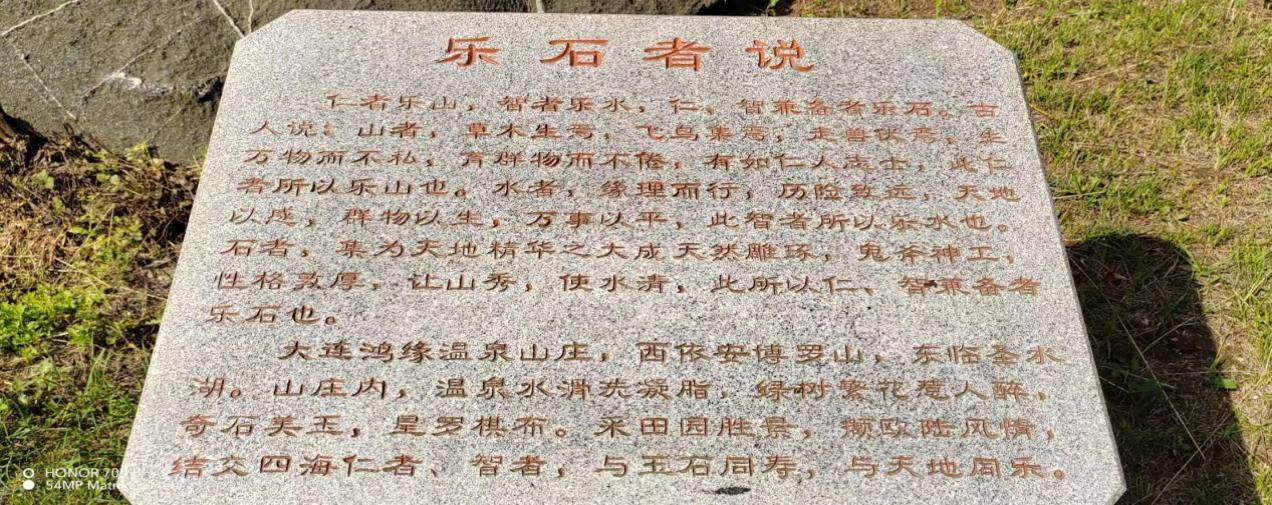 乐石者说
仁者乐山，智者乐水，仁、智兼备者乐石。古
人说：山者，草木生焉，飞鸟集焉，走兽伏焉，生
万物而不私，育群物而不倦，有如仁人志士，此仁
者所以乐山也。水者，缘理而行，历险致远，天地
以成，群物以生，万事以平，此智者所以乐水也。
石者，集为天地精华之大成天然雕琢，鬼斧神工，
性格敦厚，让山秀，使水清，此所以仁、智兼备者
乐石也。
大连鸿缘温泉山庄，西依安博罗山，东临圣水
湖。山庄内，温泉水滑洗凝脂，绿树繁花惹人醉，
奇石美玉，星罗棋布。采田园胜景，颇欧陆风情，
结交四海仁者、智者，与玉石同寿，与天地同乐。
HONOR 70
54MP Matrix